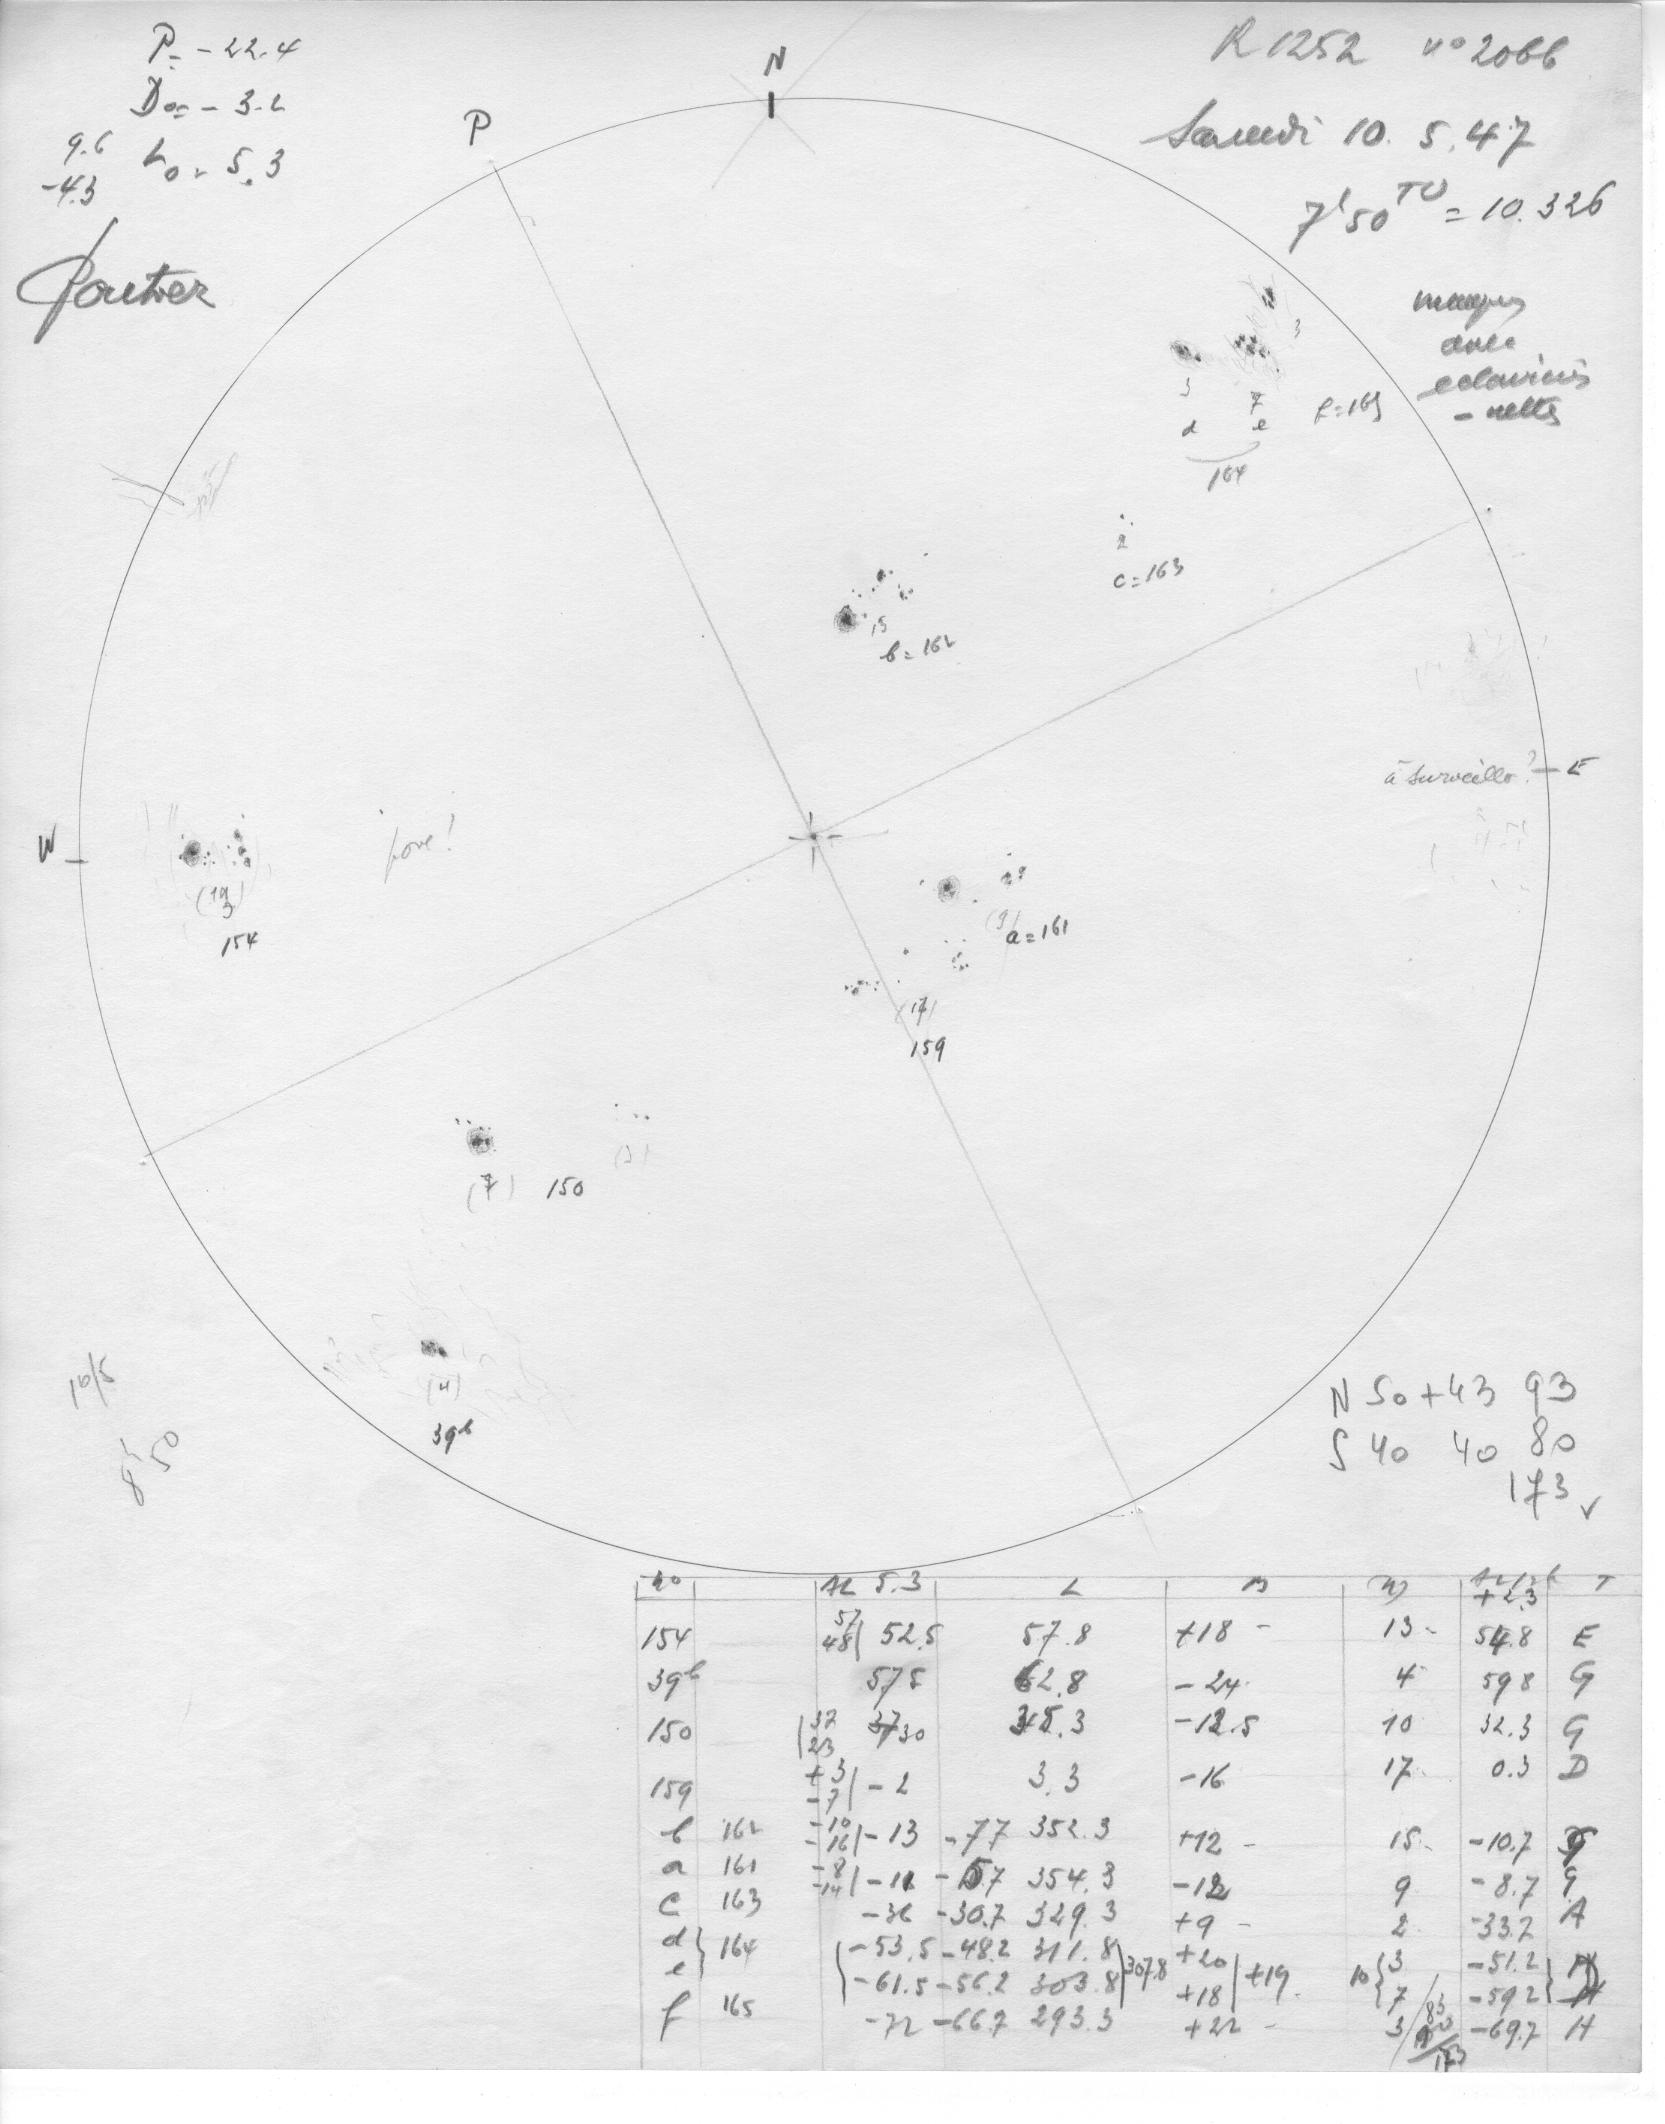 P = -22.4
D₀ = -3.2
9.6
-4.3
L₀ = 5.3
N
P
R 1252 n° 2066
Samedi 10. 5. 47
7ʰ50 TU = 10.326
images
avec
eclaircies
- nettes
3
3
7
d e
f=165
164
2
c=163
15
b=162
à surveiller? E
W
pore!
(19)
3
154
(9)
a=161
(17)
159
(7) 150
(3)
(4)
39ᵇ
10/5
8ʰ50
N 50 + 43 93
S 40 40 80
173 ✓
n° AL 5.3 L B +2.3 T
154 57 48 52.5 57.8 +18 - 13 - 54.8 E
39ᵇ 57.5 62.8 -24 4 59.8 G
150 37 23 30 35.3 -12.5 10 32.3 G
159 +3 -7 -2 3.3 -16 17 0.3 D
b 162 -10 -16 -13 -7.7 352.3 +12 - 15 - -10.7 G
a 161 -8 -14 -11 -5.7 354.3 -12 9 -8.7 G
c 163 -36 -30.7 329.3 +9 - 2 -33.7 A
d 164 -53.5 -48.2 311.8 307.8 +20 +19 10 3 -51.2 D
e -61.5 -56.2 303.8 +18 7 -59.2
f 165 -72 -66.7 293.3 +22 - 3 -69.7 H
83
90
173